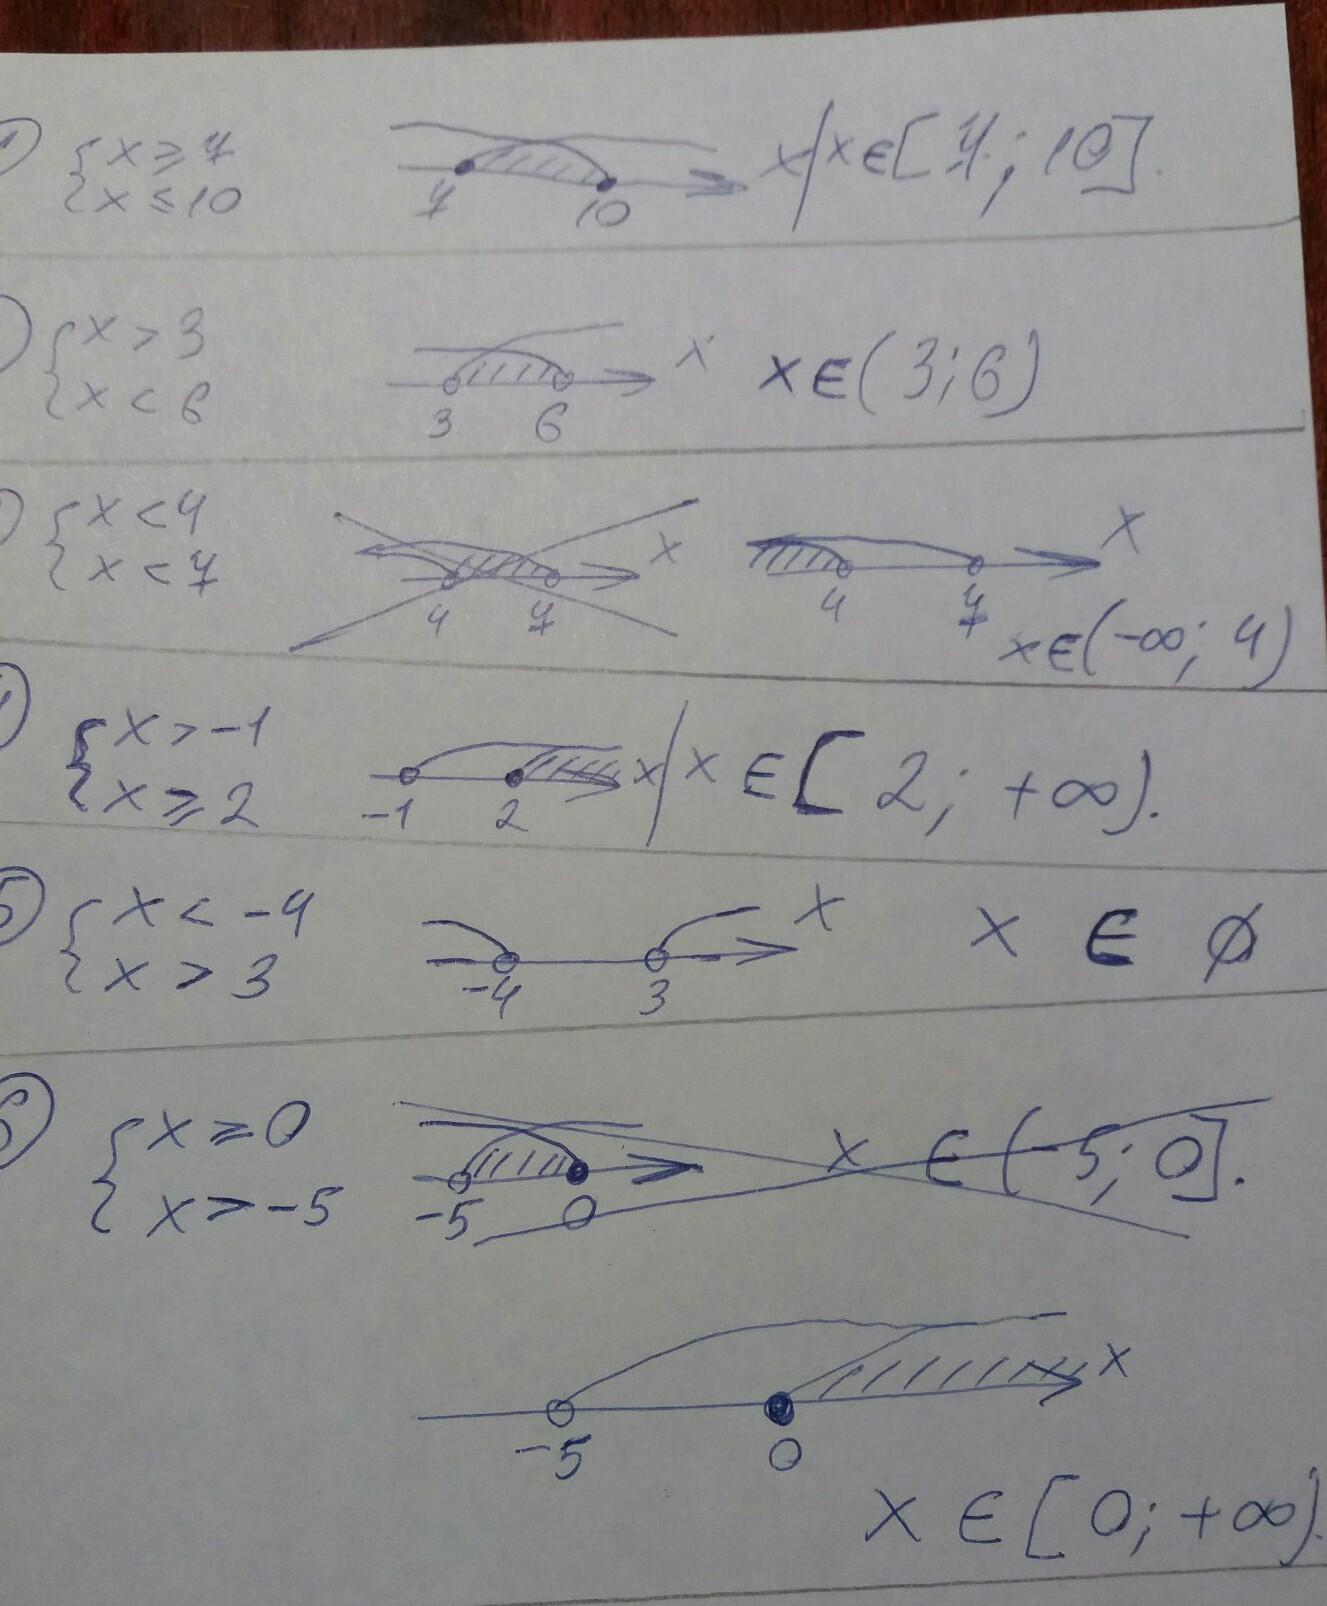 { x ≥ 7
{ x ≤ 10
7 10 x / x ∈ [7; 10].
{ x > 3
{ x < 6
3 6 x x ∈ (3; 6)
{ x < 4
{ x < 7
4 7 x 4 7 x
x ∈ (-∞; 4)
4 { x > -1
{ x ≥ 2
-1 2 x / x ∈ [2; +∞).
5 { x < -4
{ x > 3
-4 3 x x ∈ ∅
6 { x ≥ 0
{ x > -5
-5 0 x ∈ (-5; 0].
-5 0 x
x ∈ [0; +∞).